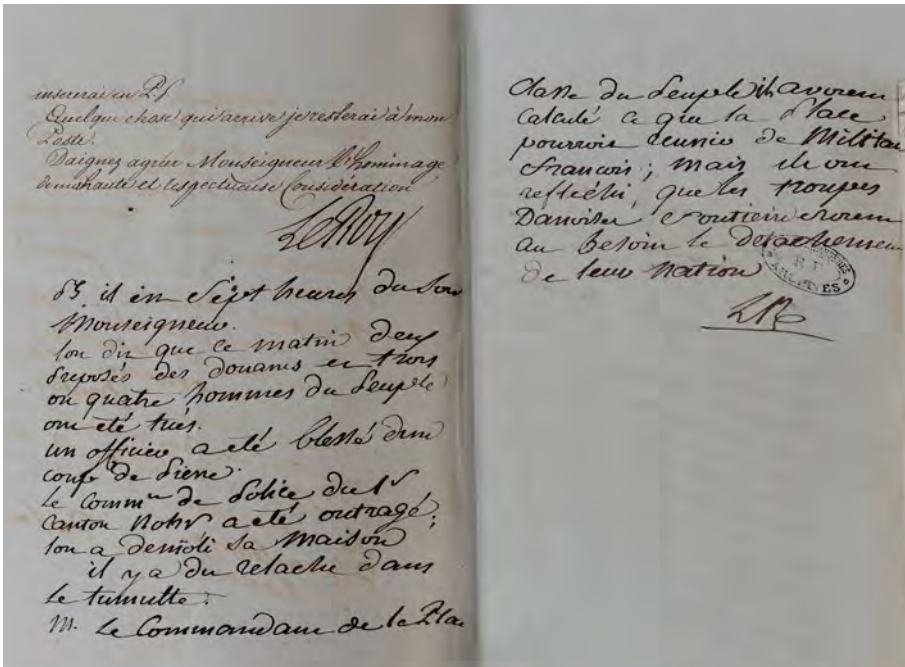 insererai en P.S.
Quelque chose qui arrive je resterai à mon
Poste.
Daignez agréer Monseigneur l'hommage
de ma haute et respectueuse Consideration
LeRoy
PS il est Sept heures du Soir
Monseigneur.
lon dit que ce matin deux
préposés des douanes et trois
ou quatre hommes du Peuple
ont été tués.
un officier a été blessé d'un
coup de Pierre.
Le Comm.re de Police du 1r
Canton Nohr a été outragé;
lon a démoli sa Maison
il y a du relache dans
le tumulte.
M. Le Commandant de la Place
Classe du Peuple ils avoient
calculé ce que la Place
pourroit reunir de Militai
francois; mais ils ont
reflechi, que les troupes
Danoises soutiendroient
au besoin le detachement
de leur Nation
ARCHIVES
LR